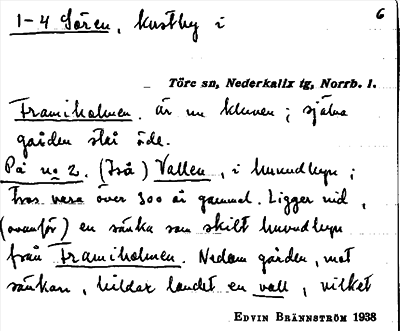 1-4 Sören, kustby i
6
Töre sn, Nederkalix tg, Norrb. l.
Framiholmen. är nu kluven; själva
gården står öde.
På no 2. (två) Vallen, i huvudbyn;
tros vara över 300 år gammal. Ligger vid,
(ovanför) en sänka som skilt huvudbyn
från Framiholmen. Nedom gården, mot
sänkan, bildar landet en vall, vilket
EDVIN BRÄNNSTRÖM 1938